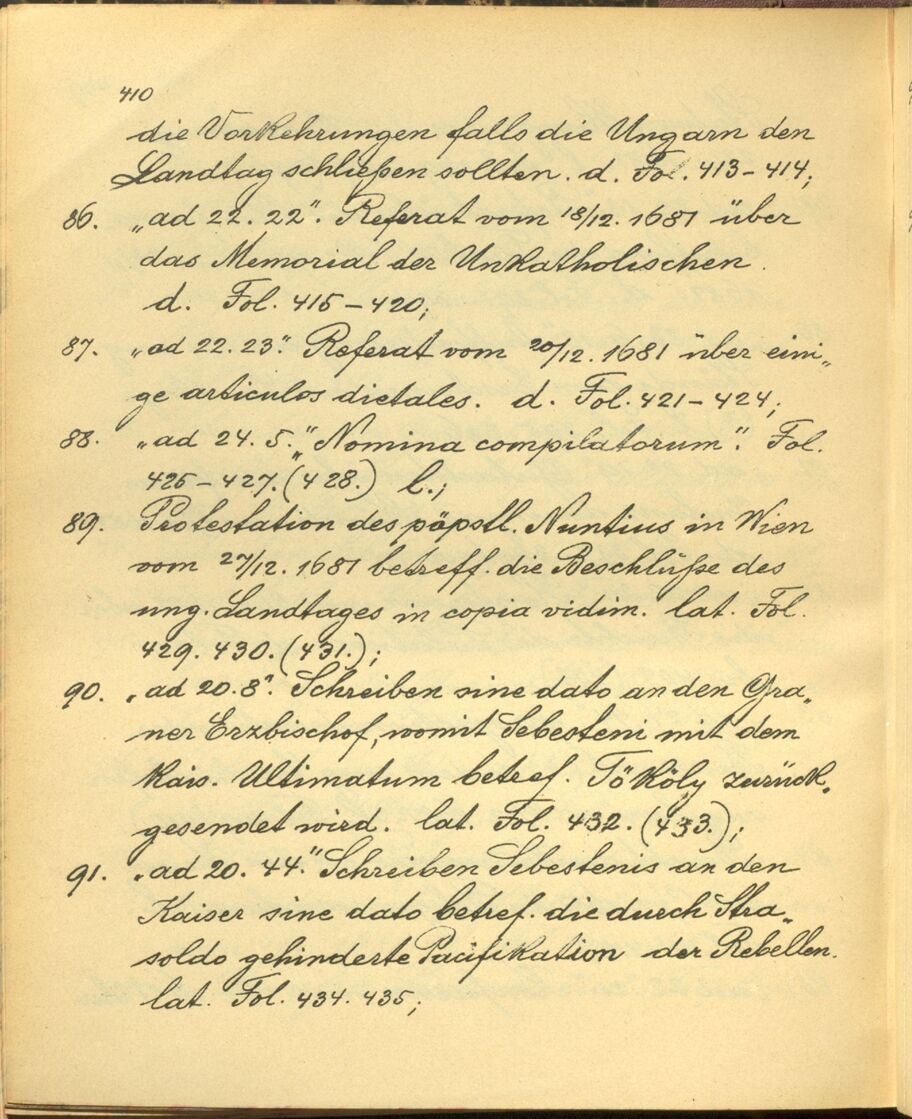 410
die Vorkehrungen falls die Ungarn den
Landtag schließen sollten. d. Fol. 413–414;
86. „ad 22. 22“. Referat vom 18/12. 1681 über
das Memorial der Unkatholischen.
d. Fol. 415–420;
87. „ad 22. 23“. Referat vom 20/12. 1681 über eini„
ge articulos dietales. d. Fol. 421–424;
88. „ad 24. 5.“ „Nomina compilatorum“. Fol.
425–427. (428.) l.;
89. Protestation des päpstl. Nuntius in Wien
vom 27/12. 1681 betreff. die Beschlüße des
ung. Landtages in copia vidim. lat. Fol.
429. 430. (431.);
90. „ad 20. 8“. Schreiben sine dato an den Gra„
ner Erzbischof, womit Sebesteni mit dem
kais. Ultimatum betref. Tököly zurück„
gesendet wird. lat. Fol. 432. (433.);
91. „ad 20. 44.“ Schreiben Sebestenis an den
Kaiser sine dato betref. die durch Stra„
soldo gehinderte Pacifikation der Rebellen.
lat. Fol. 434. 435;